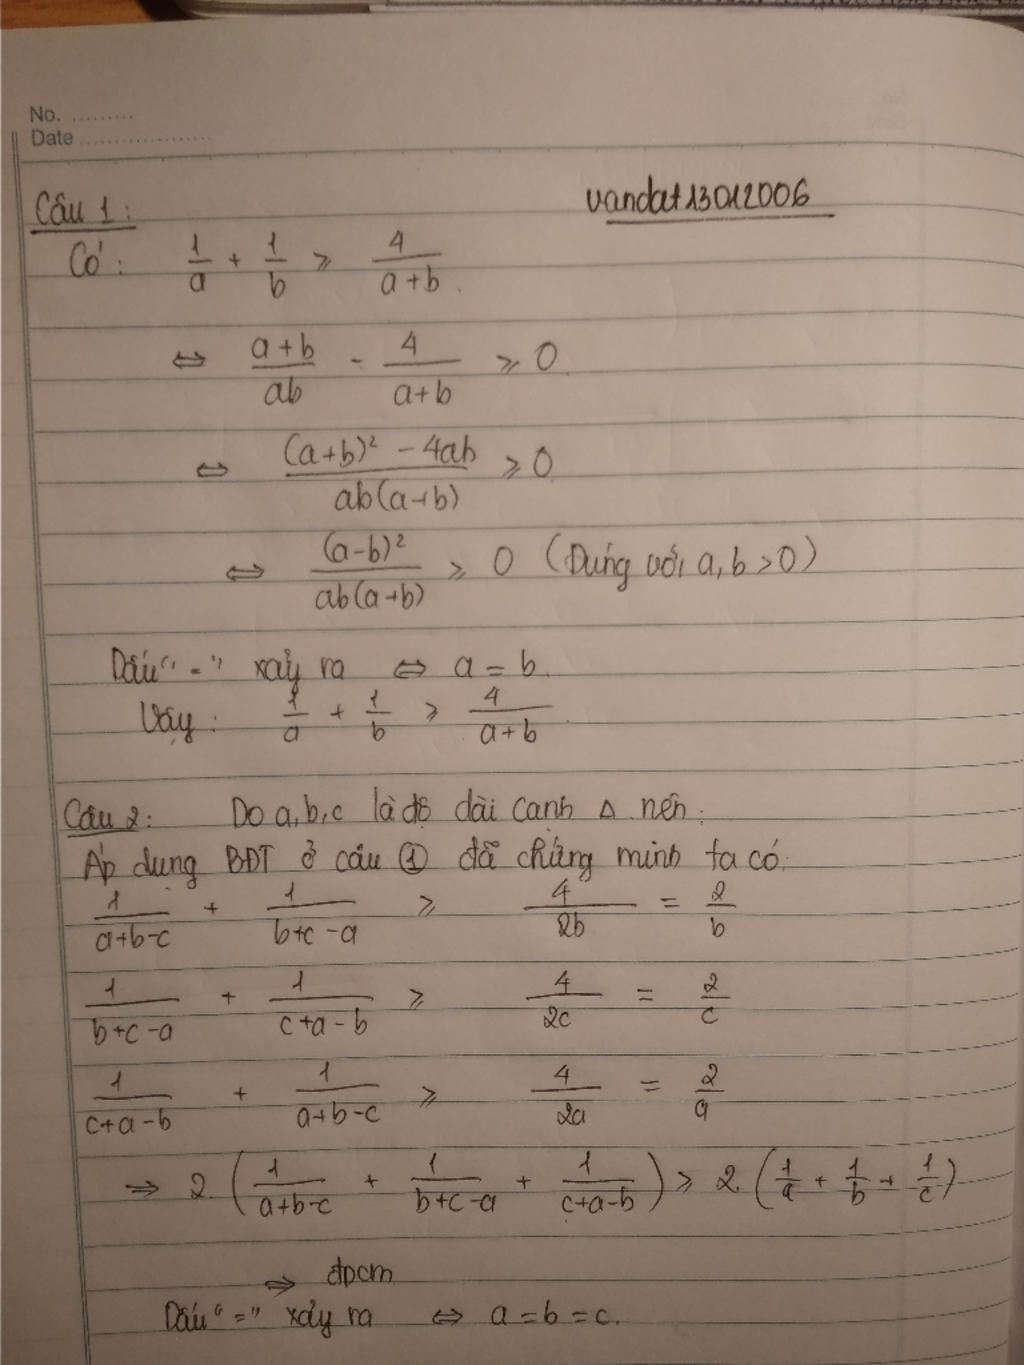 No. .........
Date ...................
Câu 1:
vandat13012006
Có: 1/a + 1/b ≥ 4/(a+b).
⇔ (a+b)/ab - 4/(a+b) ≥ 0.
⇔ ((a+b)² - 4ab)/(ab(a+b)) ≥ 0
⇔ (a-b)²/(ab(a+b)) ≥ 0 (Đúng với a, b > 0)
Dấu "=" xảy ra ⇔ a = b.
Vậy: 1/a + 1/b ≥ 4/(a+b).
Câu 2: Do a, b, c là độ dài cạnh Δ nên:
Áp dụng BĐT ở câu ① đã chứng minh ta có:
1/(a+b-c) + 1/(b+c-a) ≥ 4/2b = 2/b
1/(b+c-a) + 1/(c+a-b) ≥ 4/2c = 2/c
1/(c+a-b) + 1/(a+b-c) ≥ 4/2a = 2/a
⇒ 2.(1/(a+b-c) + 1/(b+c-a) + 1/(c+a-b)) ≥ 2.(1/a + 1/b + 1/c)
⇒ đpcm
Dấu "=" xảy ra ⇔ a = b = c.